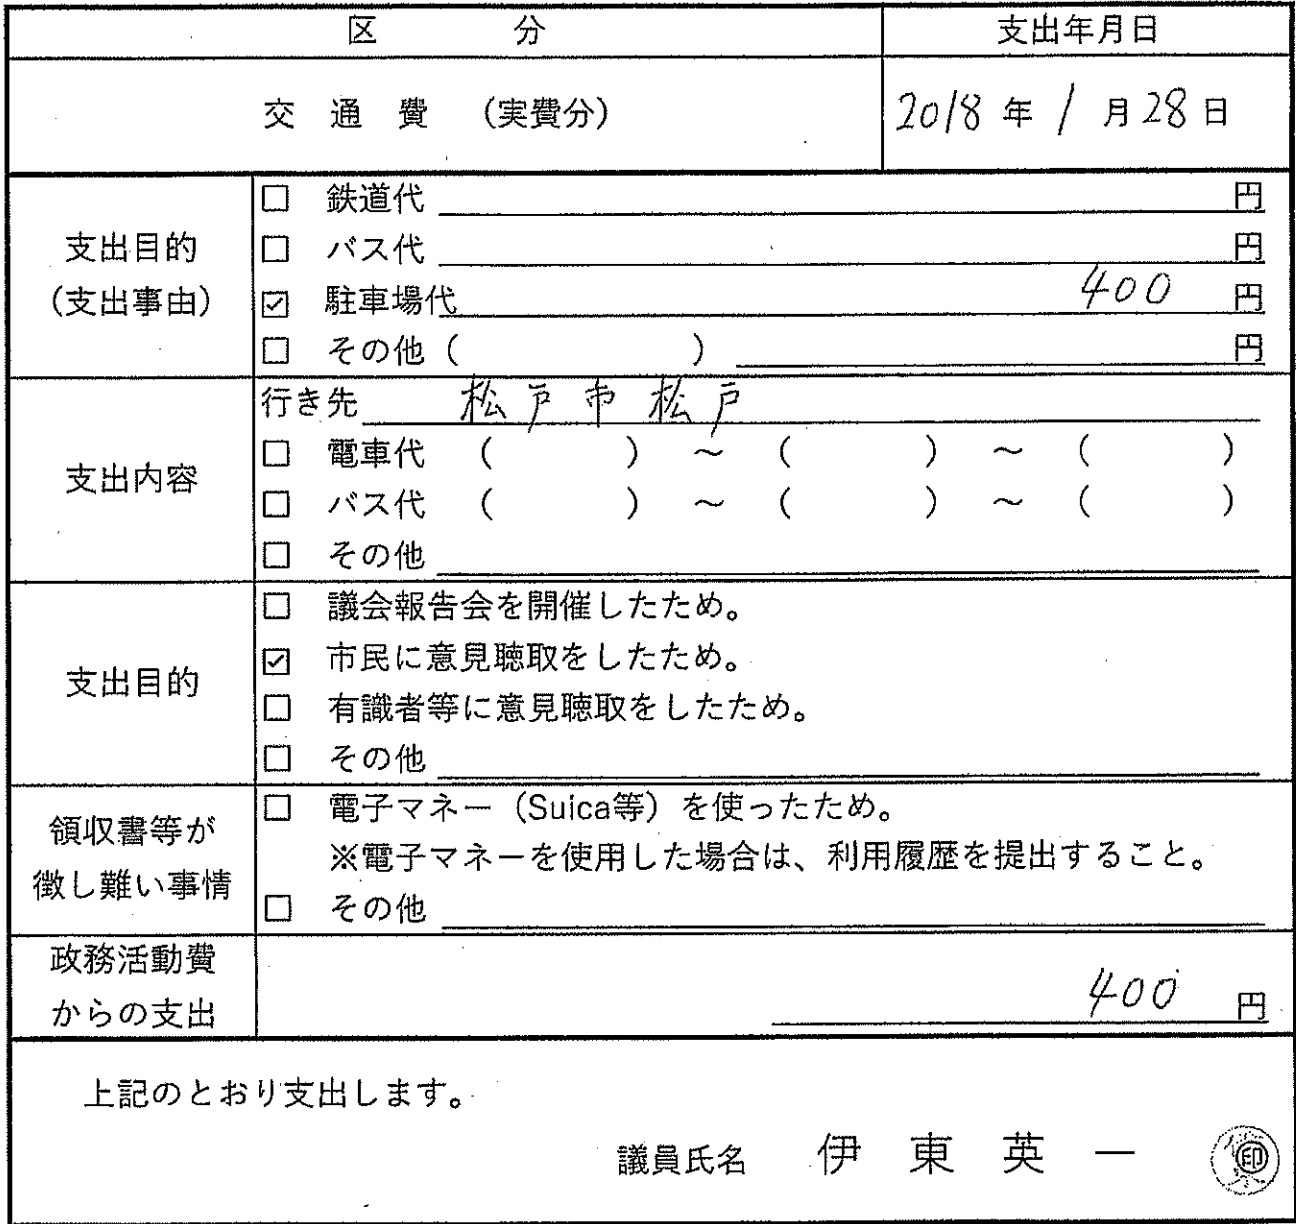 区 分 支出年月日
交 通 費 （実費分） 2018 年 1 月 28 日
支出目的
（支出事由）
□ 鉄道代 円
□ バス代 円
☑ 駐車場代 400 円
□ その他（ ） 円
支出内容
行き先 松戸市松戸
□ 電車代 （ ） ～ （ ） ～ （ ）
□ バス代 （ ） ～ （ ） ～ （ ）
□ その他
支出目的
□ 議会報告会を開催したため。
☑ 市民に意見聴取をしたため。
□ 有識者等に意見聴取をしたため。
□ その他
領収書等が
徴し難い事情
□ 電子マネー（Suica等）を使ったため。
※電子マネーを使用した場合は、利用履歴を提出すること。
□ その他
政務活動費
からの支出
400 円
上記のとおり支出します。
議員氏名 伊 東 英 一 印